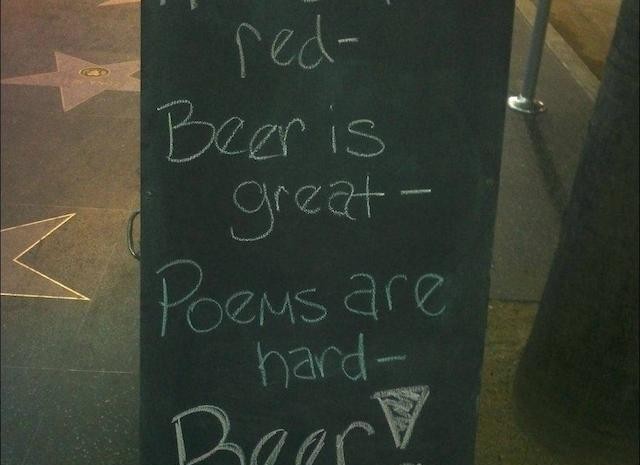 red-
Beer is
great-
Poems are
hard-
Beer